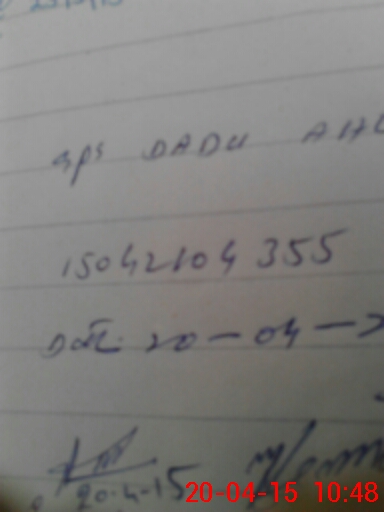 aps DADU AHL
15042104355
Date: 20-04-2
20-4-15
20-04-15 10:48